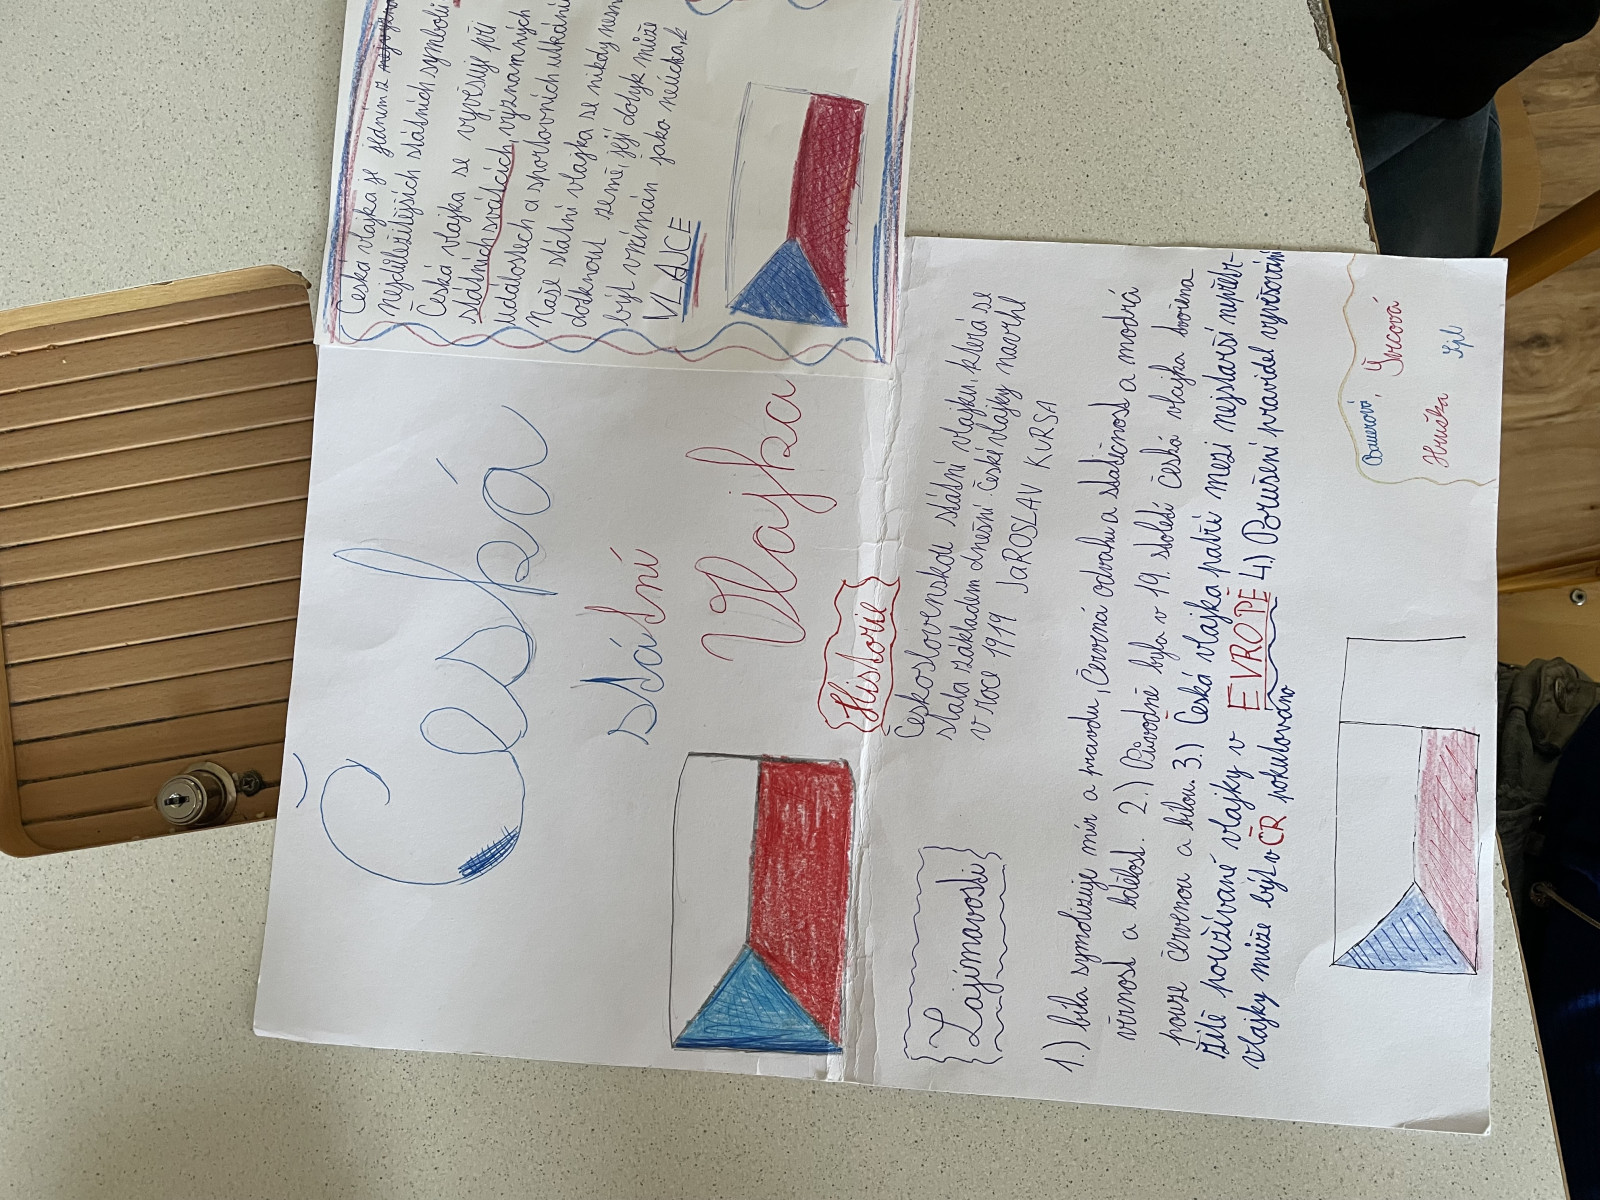 Česká
státní
Vlajka
Historie
Československou státní vlajku, která se
stala základem dnešní české vlajky navrhl
v roce 1919 JaROSLAV KURSA
Zajímavosti
1.) bílá symbolizuje mír a pravdu, červená odvahu a statečnost a modrá
věrnost a bdělost. 2.) Původně byla v 19. století česká vlajka tvořena
pouze červenou a bílou. 3.) Česká vlajka patří mezi nejstarší nepřetr-
žitě používané vlajky v EVROPĚ 4.) Porušení pravidel vyvěšování
vlajky může být v ČR pokutováno
Bauerová, Švecová
Hruška Špl
Česká vlajka je jedním z
nejdůležitějších státních symbolů
Česká vlajka se vyvěsuje při
státních svátcích, významných
událostech a sportovních utkání
Naše státní vlajka se nikdy nesm
dotknout země, její dotyk může
být vnímán jako neúcta k
VLAJCE